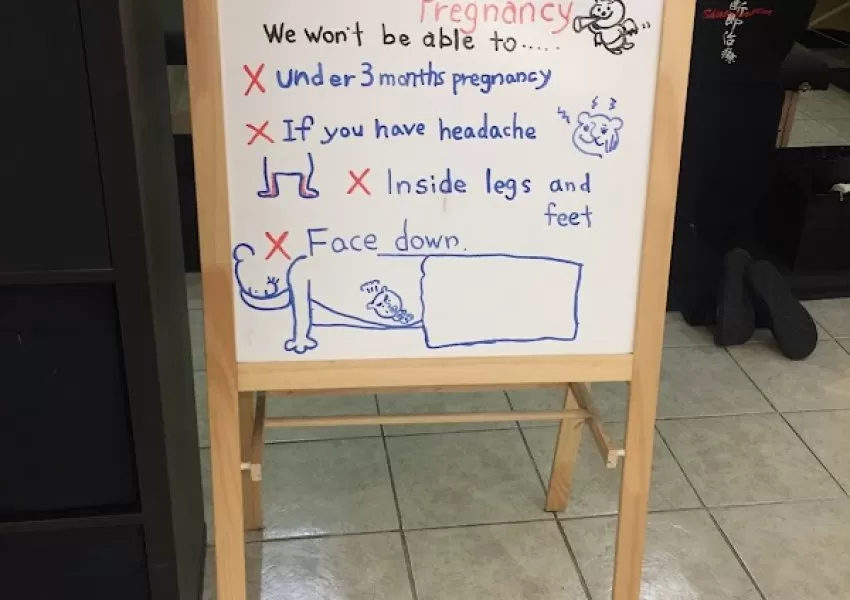 Pregnancy
We won't be able to.....
X Under 3 months pregnancy
X If you have headache
X Inside legs and
feet
X Face down.
断即治療